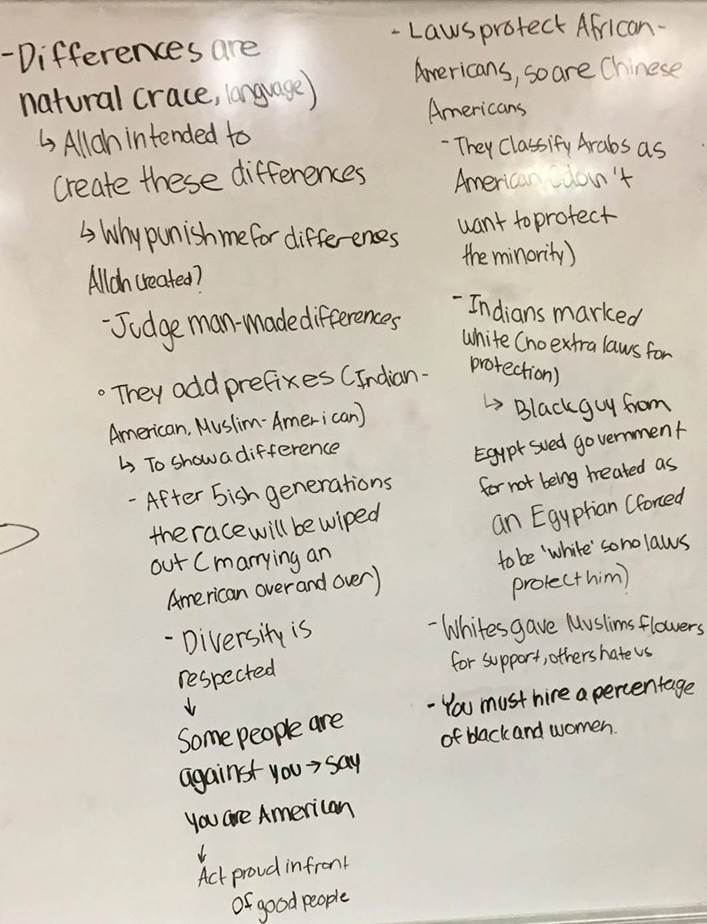 -Differences are
natural (race, language)
↳ Allah intended to
create these differences
↳ Why punish me for differences
Allah created?
-Judge man-made differences
° They add prefixes (Indian-
American, Muslim-American)
↳ To show a difference
- After 5ish generations
the race will be wiped
out (marrying an
American over and over)
- Diversity is
respected
↓
Some people are
against you → say
you are American
↓
Act proud in front
of good people
- Laws protect African-
Americans, so are Chinese
Americans
- They classify Arabs as
American (don't
want to protect
the minority)
- Indians marked
white (no extra laws for
protection)
↳ Black guy from
Egypt sued government
for not being treated as
an Egyptian (forced
to be 'white' so no laws
protect him)
- Whites gave Muslims flowers
for support, others hate us
- You must hire a percentage
of black and women.